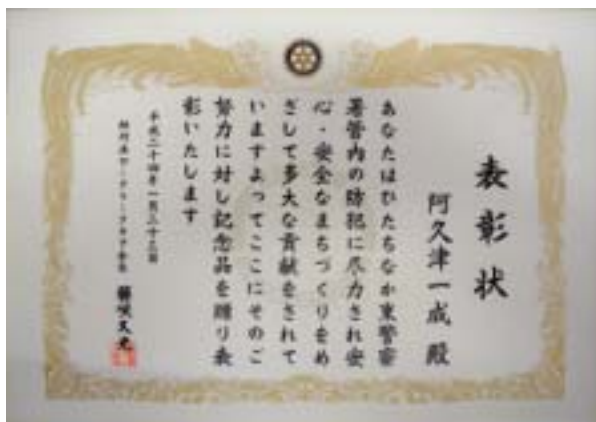 表彰状
阿久津一成 殿
あなたはひたちなか東警察
署管内の防犯に尽力され安
心・安全なまちづくりをめ
ざして多大な貢献をされて
いますよってここにそのご
努力に対し記念品を贈り表
彰いたします
平成二十四年一月二十三日
ロータリークラブ会長 藤咲久光